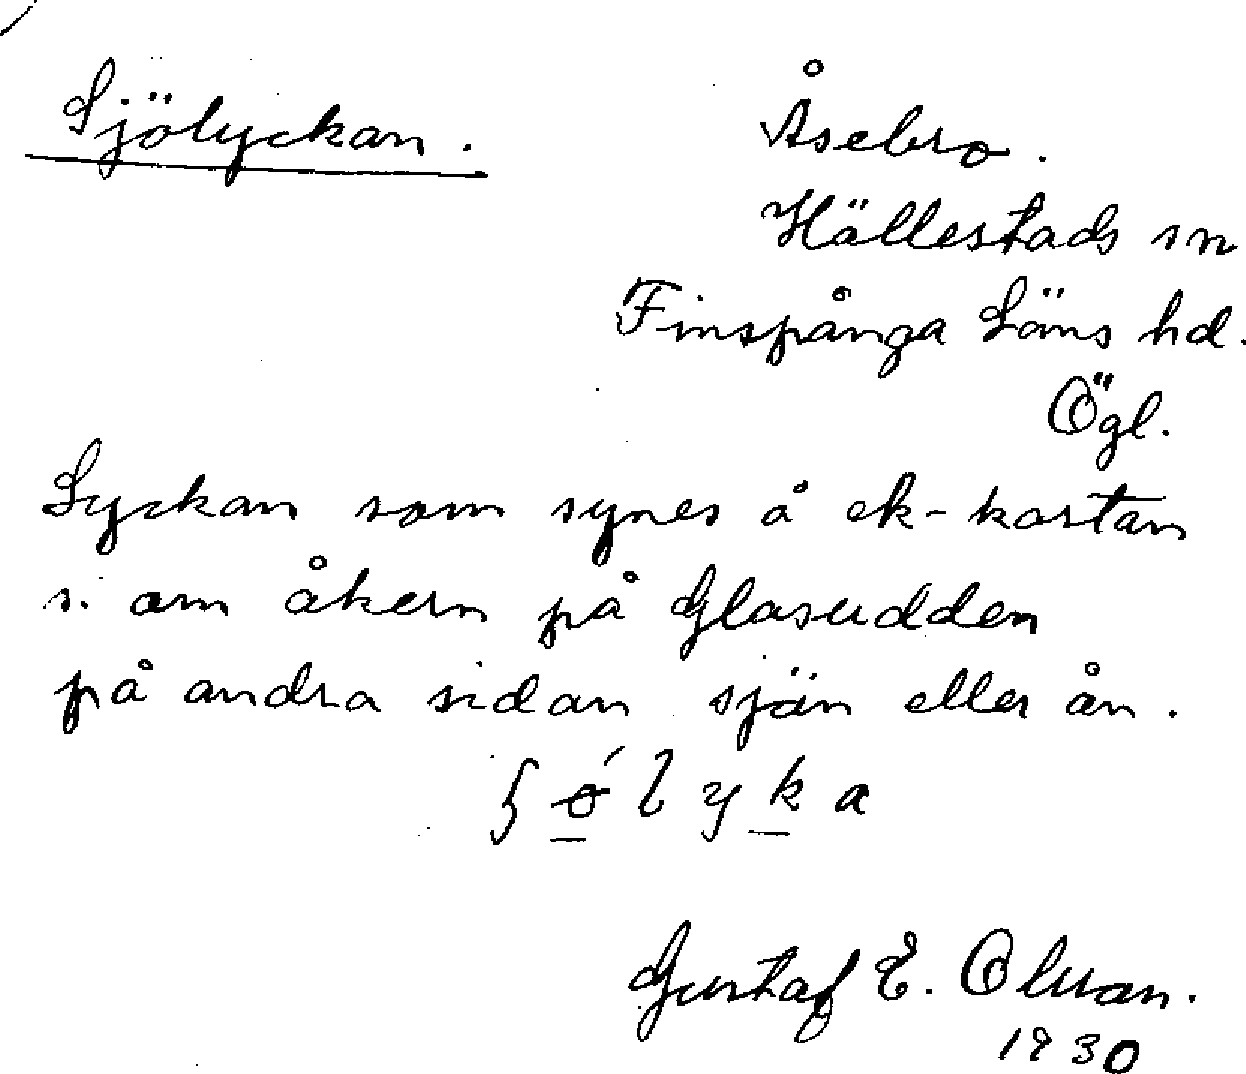 Sjölyckan.
Åsebro.
Hällestads sn
Finspånga Läns hd.
Ögl.
Lyckan som synes å ek-kartan
s. om åkern på Glasudden
på andra sidan sjön eller ån.
Gustaf E. Olsson.
1930